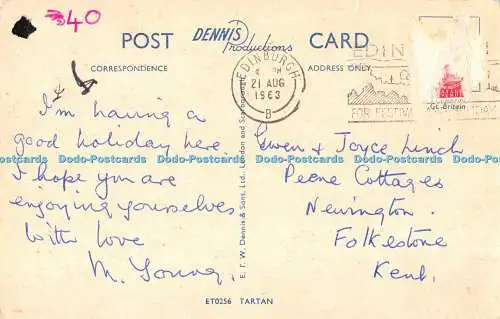 40
POST DENNIS Productions CARD
CORRESPONDENCE
ADDRESS ONLY
EDINBURGH
21 AUG
1963
B
EDIN
FOR FESTIVA
Gt. Britain
I'm having a
good holiday here
I hope you are
enjoying yourselves
With love
M. Young.
E. T. W. Dennis & Sons, Ltd., London and Scarborough
& Joyce Linch
Peene Cottages
Newington.
Folkestone
Kent.
Dodo-Postcards Dodo-Postcards Dodo-Postcards Dodo-Postcards Dodo-Postcards
ET0256 TARTAN